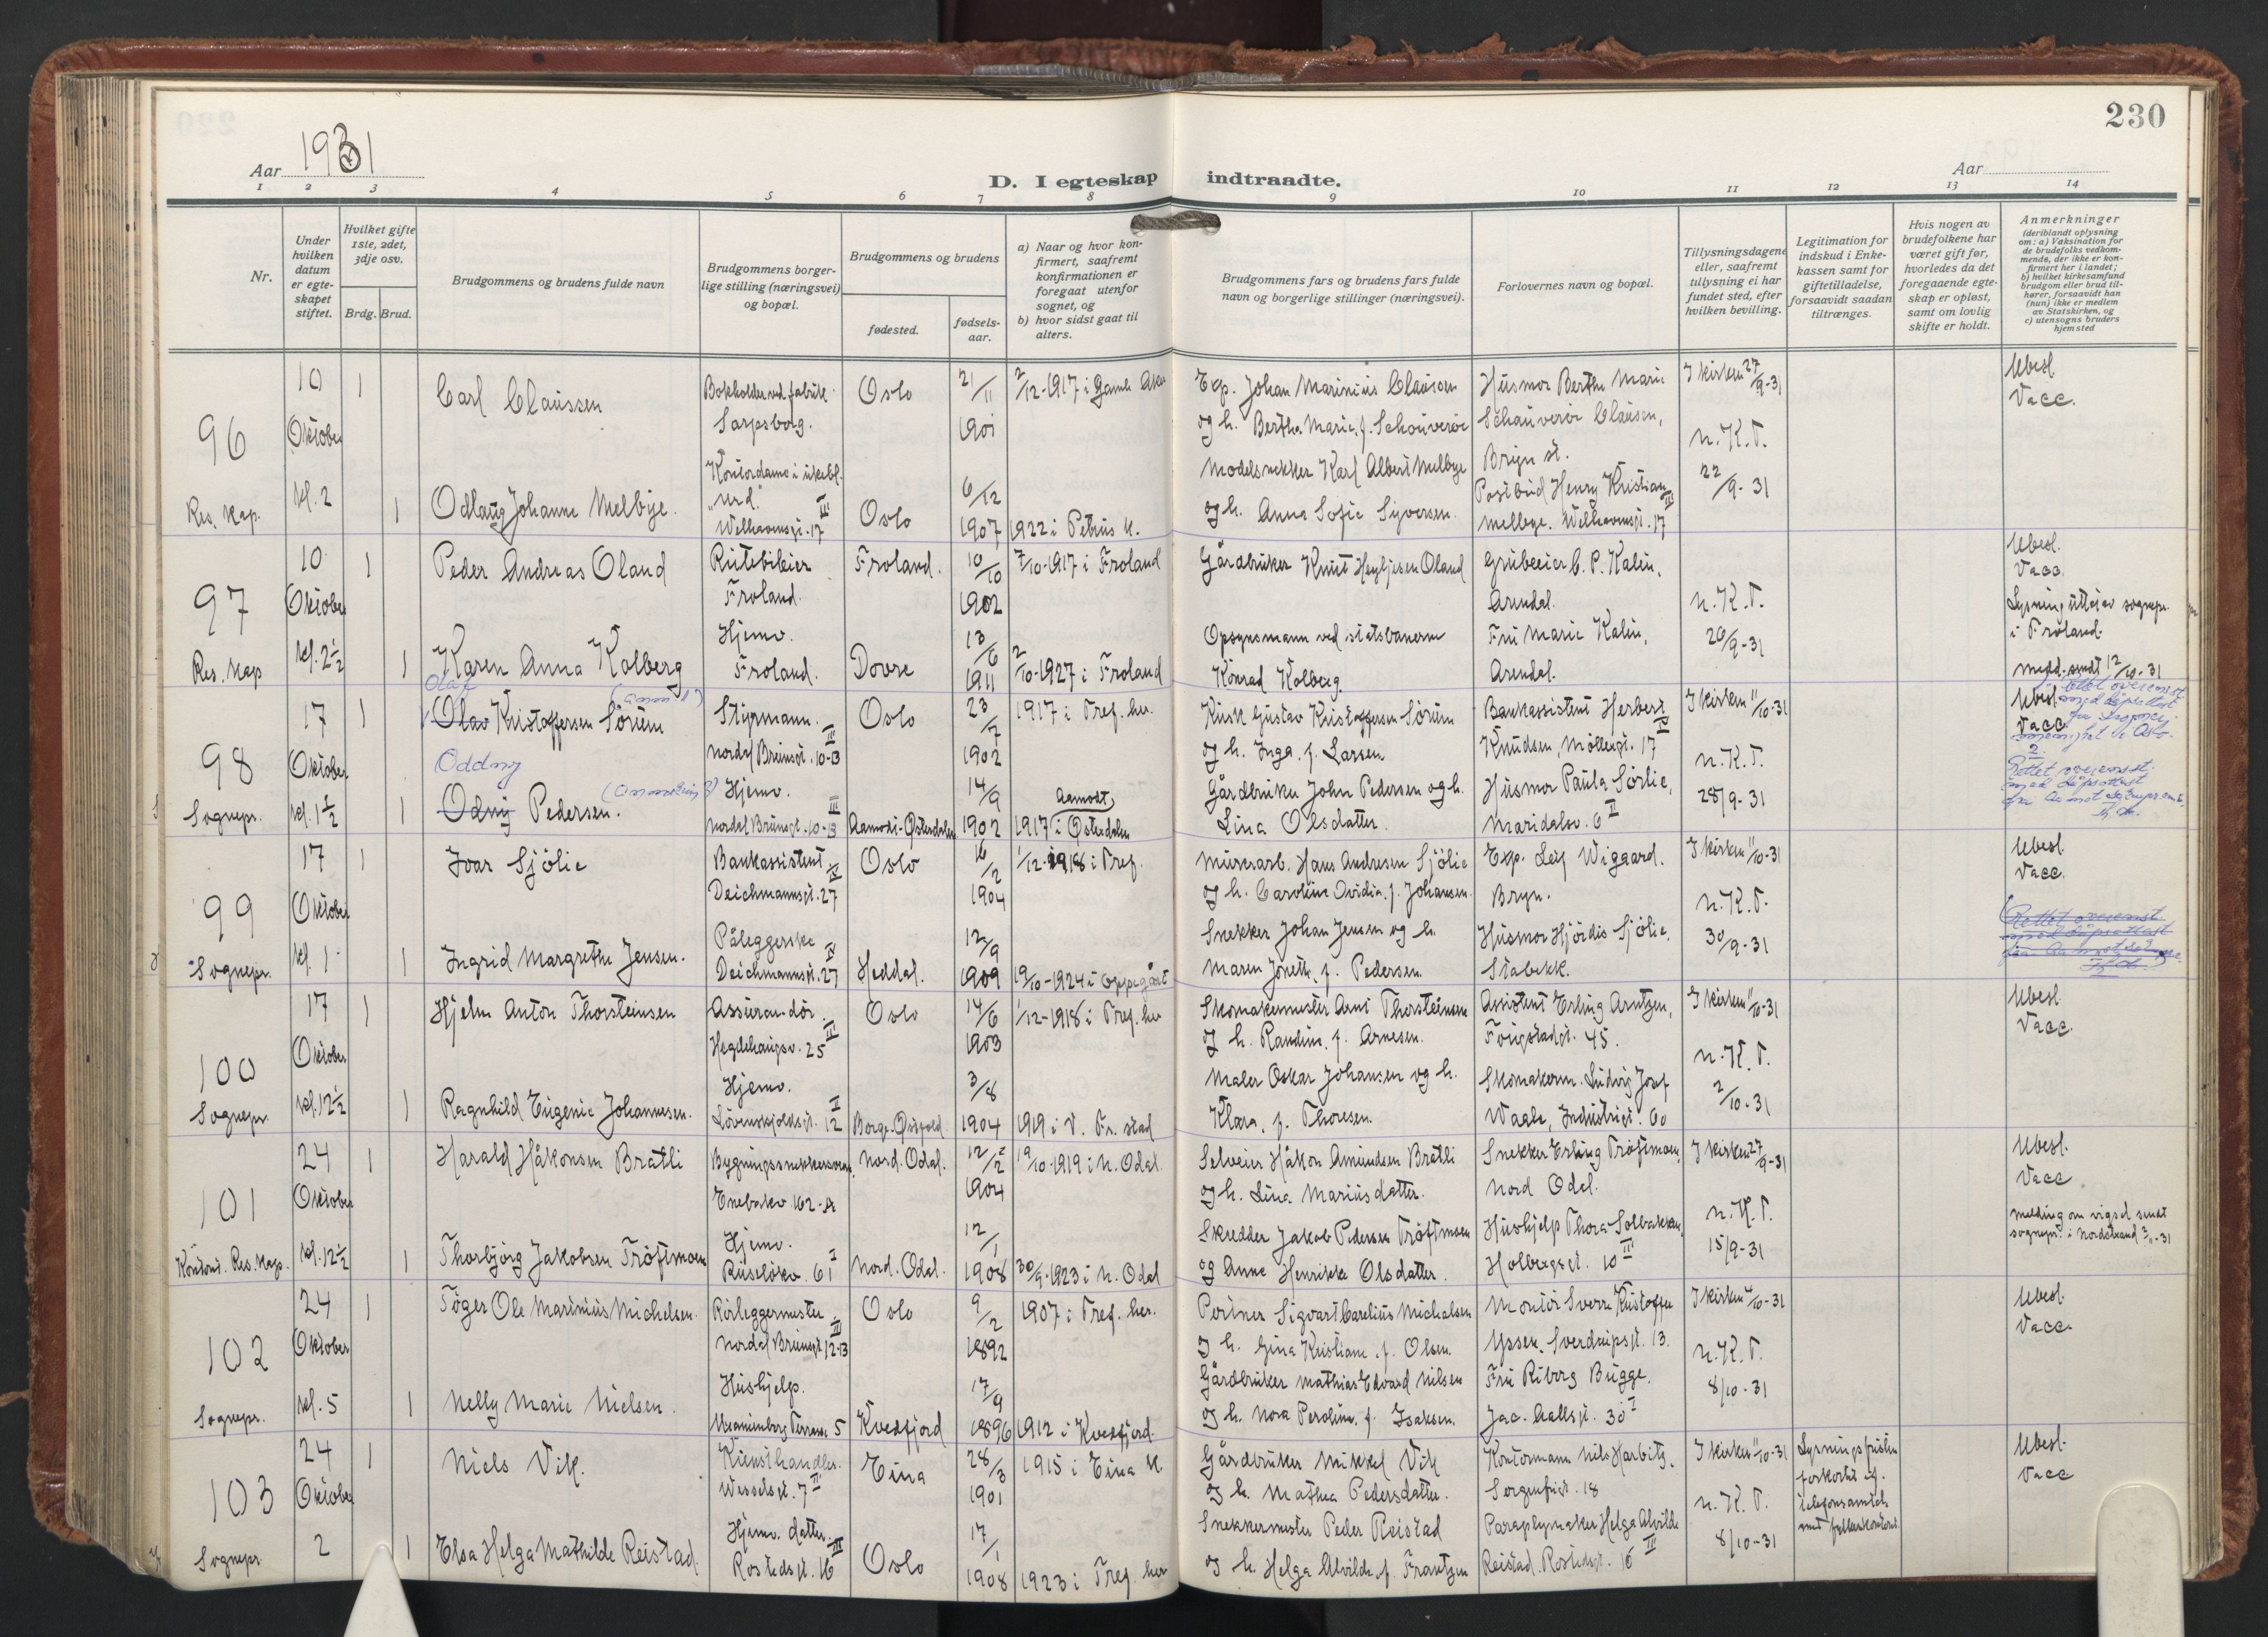 230
Aar 1931
D. I egteskap indtraadte.
Aar
1 2 3 4 5 6 7 8 9 10 11 12 13 14
Nr.
Under hvilken datum er egteskapet stiftet.
Hvilket gifte 1ste, 2det, 3dje osv.
Brdg. Brud.
Brudgommens og brudens fulde navn
Brudgommens borgerlige stilling (næringsvei) og bopæl.
Brudgommens og brudens
fødested.
fødselsaar.
a) Naar og hvor konfirmert, saafremt konfirmationen er foregaat utenfor sognet, og
b) hvor sidst gaat til alters.
Brudgommens fars og brudens fars fulde navn og borgerlige stillinger (næringsvei).
Forlovernes navn og bopæl.
Tillysningsdagene eller, saafremt tillysning ei har fundet sted, efter hvilken bevilling.
Legitimation for indskud i Enkekassen samt for giftetilladelse, forsaavidt saadan tiltrænges.
Hvis nogen av brudefolkene har været gift før, hvorledes da det foregaaende egteskap er opløst, samt om lovlig skifte er holdt.
Anmerkninger (deriblandt oplysning om: a) Vaksination for de brudefolks vedkommende, der ikke er konfirmert her i landet; b) hvilket kirkesamfund brudgom eller brud tilhører, forsaavidt han (hun) ikke er medlem av Statskirken, og c) utensogns bruders hjemsted
96
10 Oktober kl. 2
Res. kap.
1 Carl Claussen
Bokholder ved fabrik. Sarpsborg.
Oslo 21/11 1901
2/12-1917 i Gamle Aker
Exp. Johan Marinius Clausen
og h. Bertha Marie, f. Schouverøe
Husmor Berthe Marie
Schauverøe Clausen,
Bryn st.
I kirken 27/9-31
n.K.T.
22/9-31
Ubesl.
Vacc.
1 Odlaug Johanne Melbye.
Kontordame i ukebl.
"Urd."
Welhavensgt. 17 III
Oslo 6/12 1907
1922 i Petrus k.
Modelsnekker Karl Albert Melbye
og h. Anna Sofie Syversen.
Postbud Henry Kristian
Melbye. Welhavensgt. 17 III
97
10 Oktober kl. 2½
Res. kap
1 Peder Andreas Oland
Rutebileier
Froland.
Froland. 10/10 1902
7/10-1917 i Froland
Gårdbruker Knut Oland
Grubeeier C. P. Kalin,
Arendal.
n.K.T.
20/9-31
Ubesl.
Vacc.
i Froland.
Medd. sendt 12/10-31
1 Karen Anna Kolberg
Hjemv.
Froland.
Dovre 13/6 1911
2/10-1927 i Froland
Opsynsmann ved statsbanerne
Konrad Kolberg.
Fru Marie Kalin,
Arendal.
98
17 Oktober kl. 1½
Sognepr.
Olaf
1 Olav Kristoffersen Sörum
Styrmann.
Nordal Brunsgt. 10-13 III
Oslo 23/7 1902
1917 i Tref. her.
Kusk Gustav Kristoffersen Sörum
og h. Inga. f. Larsen
Bankassistent Herbert
Knudsen, Möllergt. 17 IV
I kirken 11/10-31
n.K.T.
28/9-31
Ubesl.
Vacc.
Oddny
1 Odny Pedersen.
Hjemv.
Nordal Brunsgt. 10-13 III
Aamodt-Østerdalen 14/9 1902
Aamodt
1917 i Østerdalen
Gårdbruker John Pedersen og h.
Lina Olsdatter.
Husmor Paula Sörlie,
Maridalsv. 6 II
Rettet overenst.
99
17 Oktober kl. 1
Sognepr.
1 Ivar Sjölie
Bankassistent
Deichmannsgt. 27 IV
Oslo 16/2 1904
1/12-1918 i Tref.
Murerarb. Hans Andresen Sjölie
og h. Caroline Ovidia, f. Johansen.
Exp. Leif Wiggard.
Bryn.
I kirken 11/10-31
n.K.T.
30/9-31
Ubesl.
Vacc.
Rettet overenst.
1 Ingrid Margrethe Jensen.
Påleggerske
Deichmannsgt. 27 IV
Heddal. 12/9 1909
19/10-1924 i Oppegård
Snekker Johan Jensen og h.
Maren Jonette, f. Pedersen.
Husmor Hjördis Sjölie,
Stabekk.
100
17 Oktober kl. 12½
Sognepr.
1 Hjelm Anton Thorsteinsen
Assurandör.
Hegdehaugsv. 25 III
Oslo 14/6 1903
1/12-1918 i Tref. her
Skomakermester Arni Thorsteinsen
og h. Randine, f. Arnesen.
Assistent Erling Arntzen,
Fougstadgt. 45.
I kirken 11/10-31
n.K.T.
2/10-31
Ubesl.
Vacc.
1 Ragnhild Eugenie Johannesen.
Hjemv.
Lövenskjoldsgt. 12 II
Borge. Østfold. 3/8 1904
1919 i V. Fr. stad
Maler Oskar Johansen og h.
Klara, f. Thoresen.
Skomakerm. Ludvig Josef
Waale, Industrigt. 60
101
24 Oktober kl. 12½
Konst. Res. kap.
1 Harald Håkonsen Bråtli
Bygningssnekkersvenn
Enebakv. 162-A
Nord. Odal. 12/2 1904
19/10-1919 i N. Odal.
Selveier Håkon Amundsen Bråtli
og h. Lina Mariusdatter.
Snekker Erling Tröftmoen,
Nord Odal.
I kirken 27/9-31
n.K.T.
15/9-31
Ubesl.
Vacc.
Melding om vigsel sendt
sognepr. i Nordstrand 2/11-31
1 Thorbjörg Jakobsen Tröftmoen
Hjemv.
Ruselökv. 61 I
Nord. Odal. 12/1 1908
30/9-1923 i N. Odal
Skredder Jakob Pedersen Tröftmoen
og Anne Henrikke Olsdatter.
Hushjelp Thora Solbakken,
Holbergsgt. 10 III
102
24 Oktober kl. 5
Sognepr.
1 Töger Ole Marinius Michelsen.
Rörleggermester
Nordal Brunsgt 12-13 III
Oslo 9/2 1892
1907 i Tref. her.
Portner Sigvart Carelius Michalsen
og h. Gina Kristiane. f. Olsen.
Montör Sverre Kristoffer
Yssen. Sverdrupsgt. 13.
I kirken 4/10-31
n.K.T.
8/10-31
Ubesl.
Vacc.
1 Nelly Marie Nielsen.
Hushjelp.
Uranienborg Terrasse 5
Kvedfjord 17/9 1896
1912 i Kvedfjord.
Gårdbruker Mathias Edvard Nilsen
og h. Nora Peroline, f. Isaksen.
Fru Riborg Bugge.
Jac. Aallsgt. 30 I
103
24 Oktober 2
Sognepr.
1 Niels Vik.
Kunsthandler.
Wesselsgt. 7 II
Eina 28/3 1901
1915 i Eina k.
Gårdbruker Mikkel Vik
og h. Mathea Pedersdatter.
Kontormann Nils Harbitz,
Sorgenfrigt. 18
I kirken 11/10-31
n.K.T.
8/10-31
Lysningsfristen
forkortet efr.
telefonsamtale
med fylkeskontoret
Ubesl.
Vacc
1 Elsa Helga Mathilde Reistad.
Hjemv. datter.
Rostedsgt. 16 III
Oslo 17/1 1908
1923 i Tref. her
Snekkermester Peder Reistad
og h. Helga Alvilde, f. Frantzen
Paraplymaker Helga Alvilde
Reistad. Rostedsgt. 16 III